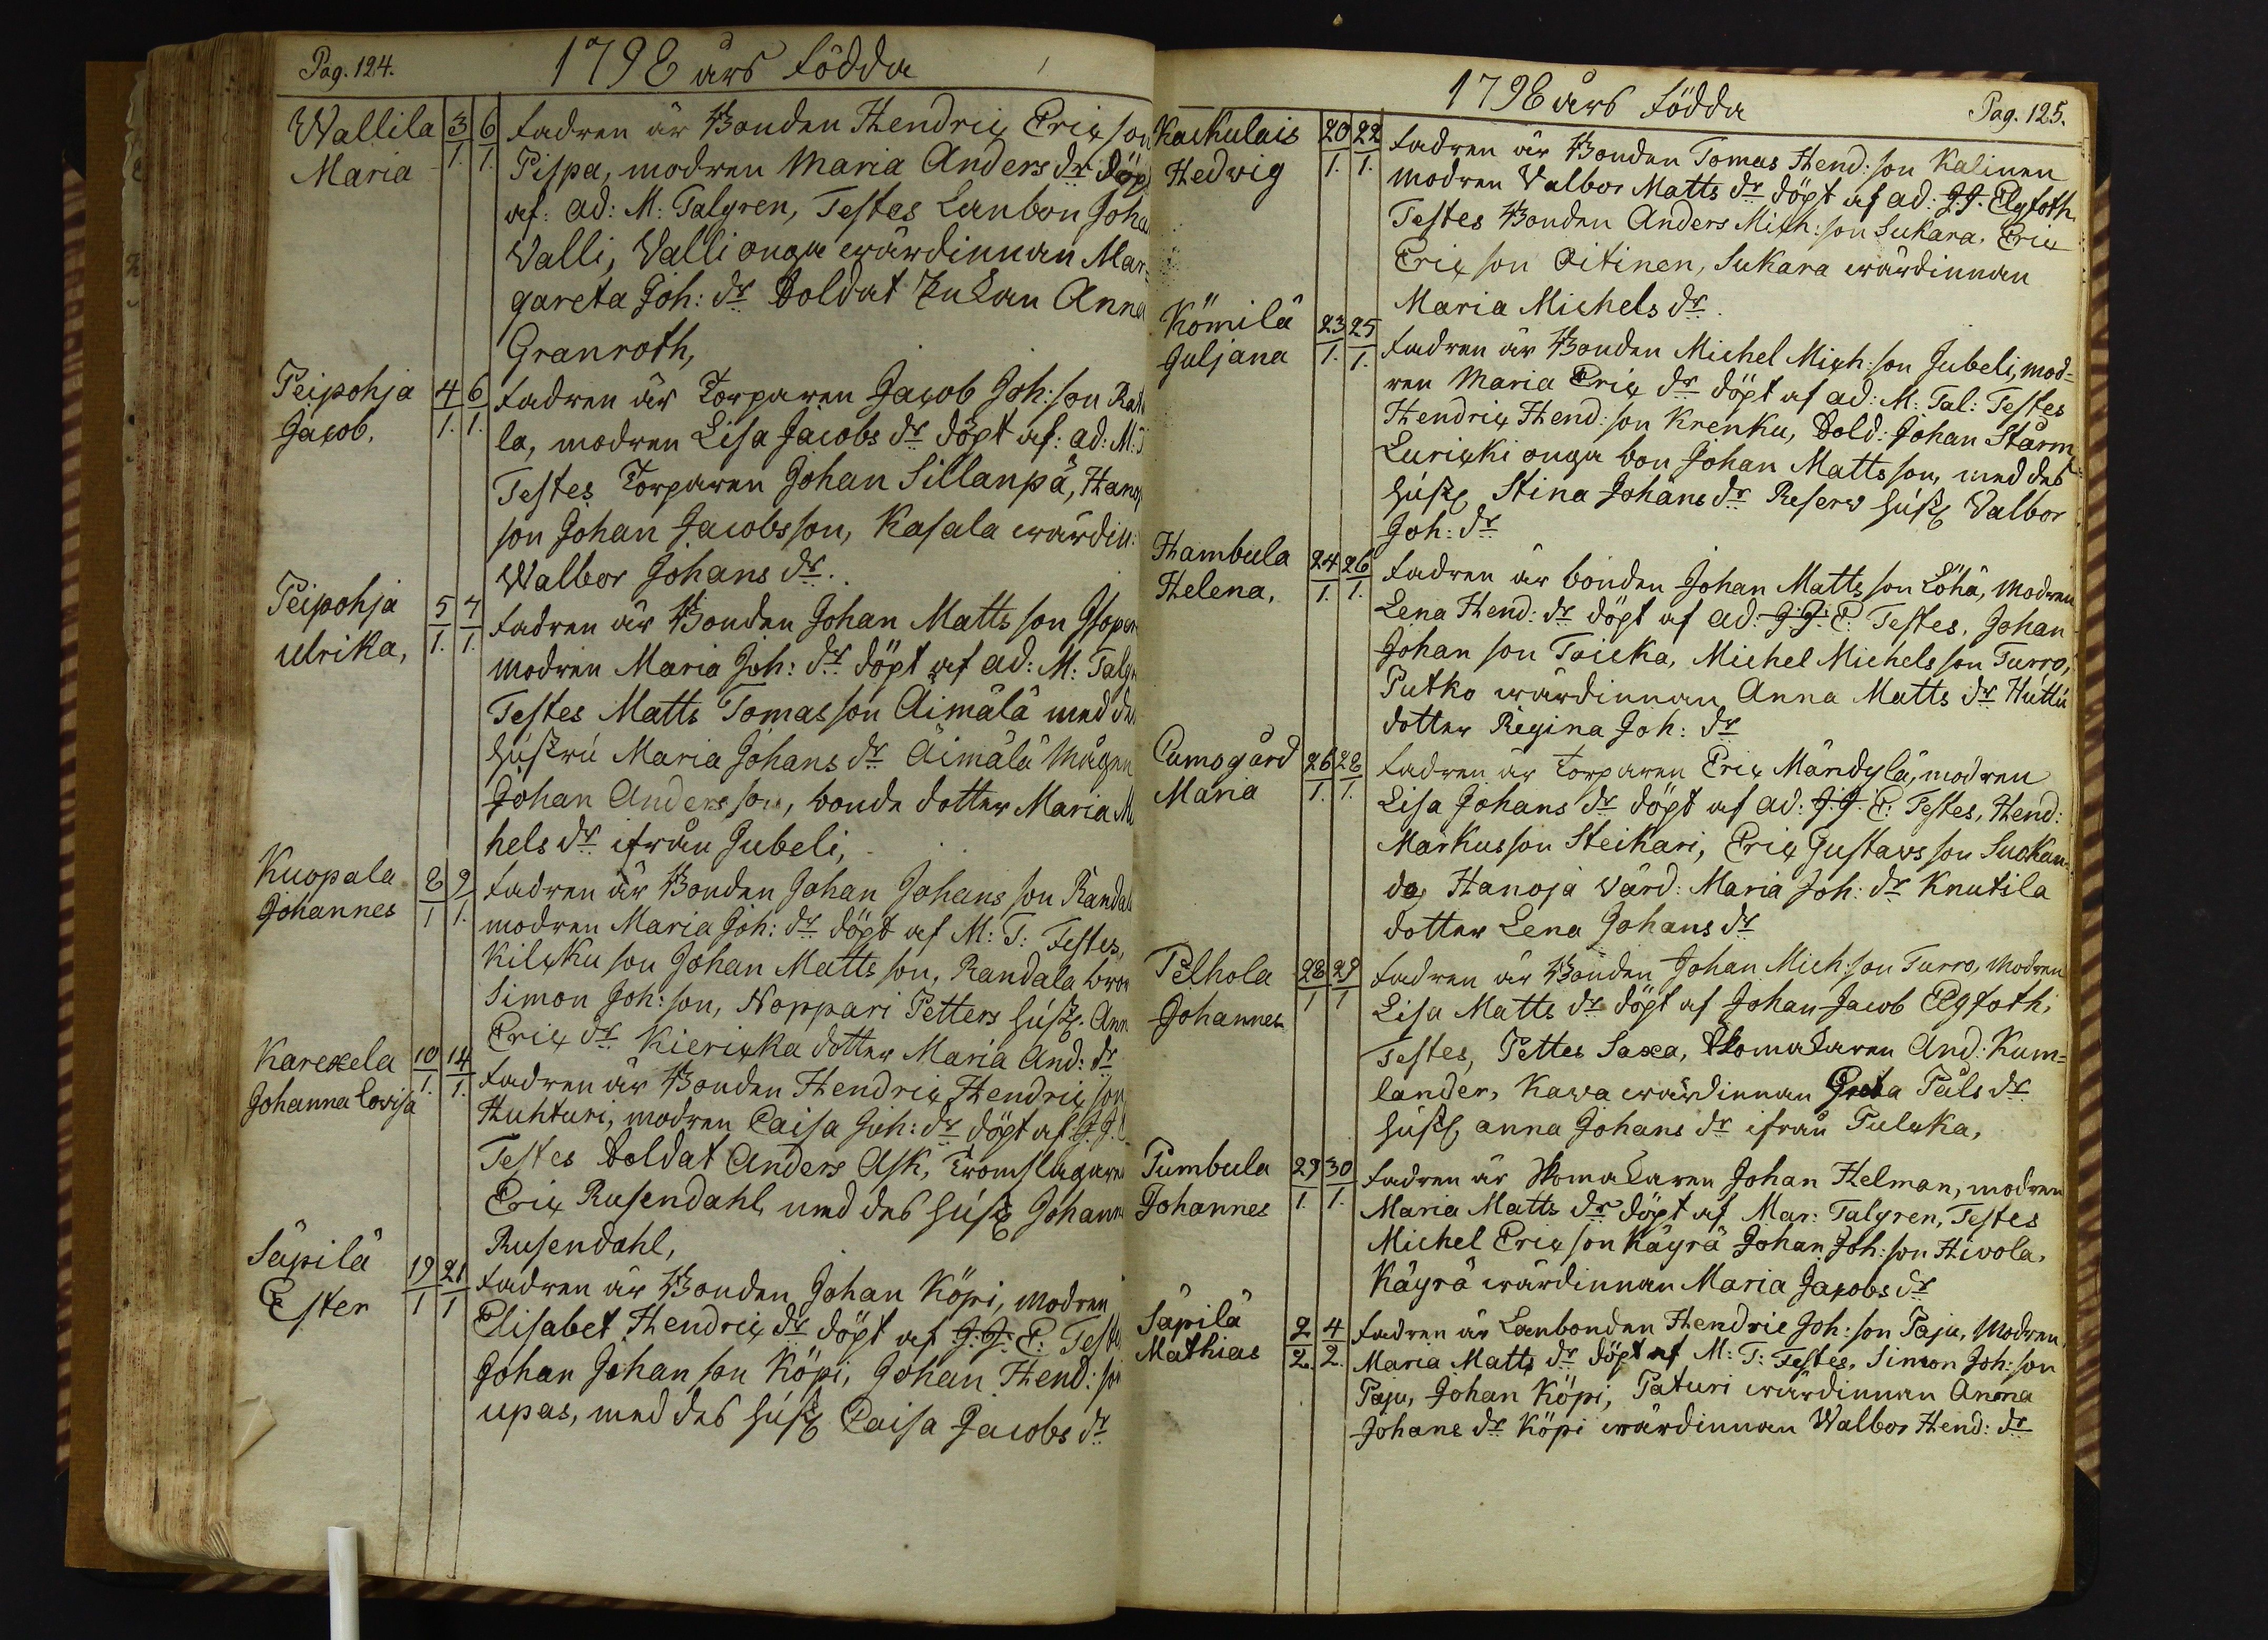 Pag. 124.
1798 års födda
Wallila 3/1. 6/1. fadren är Bonden Hendric Eric son
Maria Pispa, modren Maria Anders dr döp
af: ad: M: Talgren, Testes Lanbon Joha
Valli, Valli onga wärdinnan Mar=
gareta Joh: dr Soldat Enkan Anna
Granroth,
Peipohja 4/1. 6/1. fadren är Torparen Jacob Joh: son
Jacob. la, modren Lisa Jacobs dr döpt af: ad: M:
Testes Torparen Johan Sillanpä,
son Johan Jacobs son, Kasala wärdin:
Walbor Johans dr.
Peipohja 5/1. 7/1. fadren är Bonden Johan Matts son
Ulrika, modren Maria Joh: dr döpt af ad: M: Talg
Testes Matts Tomas son Äimälä med des
hustru Maria Johans dr Äimälä mågen
Johan Anders son, bonde dotter Maria Mi
hels dr ifrån Jubeli,
Kuopala 8/1 9/1. fadren är Bonden Johan Johans son Randal
Johannes modren Maria Joh: dr döpt af M: T: Testes,
Kilcku son Johan Matts son, Randala bror
Simon Joh: son, Noppari Petters hust. Ann
Eric dr Kiericka dotter Maria And: dr
Karexela 10/1. 14/1. fadren är Bonden Hendric Hendric son
Johanna Lovisa Huhturi, modren Caisa Joh: dr döpt af J. J. E.
Testes Soldat Anders Ask, Tromslagaren
Eric Rusendahl, med des hust Johanna
Rusendahl,
Säpilä 19/1 21/1 fadren är Bonden Johan Köpi, modren
Ester Elisabet Hendric dr döpt af J. J. E: Teste
Johan Johan son Köpi, Johan Hend: son
upas, med des hust Caisa Jacobs dr
1798 års födda
Pag. 125.
Kaukulais 20/1. 22/1. fadren är Bonden Tomas Hend: son Kalinen
Hedvig modren Valbor Matts dr döpt af ad: J. J. Elgfoth.
Testes Bonden Anders Mich: son Sukara. Eric
Eric son Oitinen, Sukara wärdinnan
Maria Michels dr.
Kömilä 23/1. 25/1. fadren är Bonden Michel Mich: son Jubeli, mod=
Juljana ren Maria Eric dr döpt af ad: M: Tal: Testes
Hendric Hend: son Krenku, Sold: Johan Stårm,
Luricki onga bon Johan Matts son, med des
hust Stina Johans dr Reserv hust Valbor
Joh: dr
Hambula 24/1. 26/1. fadren är bonden Johan Matts son Löhä, modren
Helena, Lena Hend: dr döpt af ad: J. J. E: Testes, Johan
Johan son Toicka, Michel Michels son Turro,
Putko wärdinnan Anna Matts dr Huttu
dotter Regina Joh: dr
Cumogård 26/1. 28/1. fadren är Torparen Eric Mändylä, modren
Maria Lisa Johans dr döpt af ad: J. J. E: Testes, Hend:
Markus son Steikari, Eric Gustavs son Suckan
da, Hanoja värd: Maria Joh: dr Knutila
dotter Lena Johans dr
Pelhola 28/1 29/1 fadren är Bonden Johan Mich: son Turro, modren
Johannes Lisa Matts dr döpt af Johan Jacob Elgfoth,
Testes, Pettes Saxa, Skomakaren And: Kum=
lander, Kawa wärdinnan Greta Påls dr
hust, anna Johans dr ifrån Pulcka,
Pumbula 29/1. 30/1. fadren är Skomakaren Johan Helman, modren
Johannes Maria Matts dr döpt af Mar: Talgren, Testes
Michel Eric son Käyrä Johan Joh: son Hivola,
Käyrä wärdinnan Maria Jacobs dr
Säpilä 2/2. 4/2. fadren är Lanbonden Hendric Joh: son Paju, modren,
Mathias Maria Matts dr döpt af M: T: Testes, Simon Joh: son
Paju, Johan Köpi, Paturi wärdinnan Anna
Johans dr Köpi wärdinnan Walbor Hend: dr